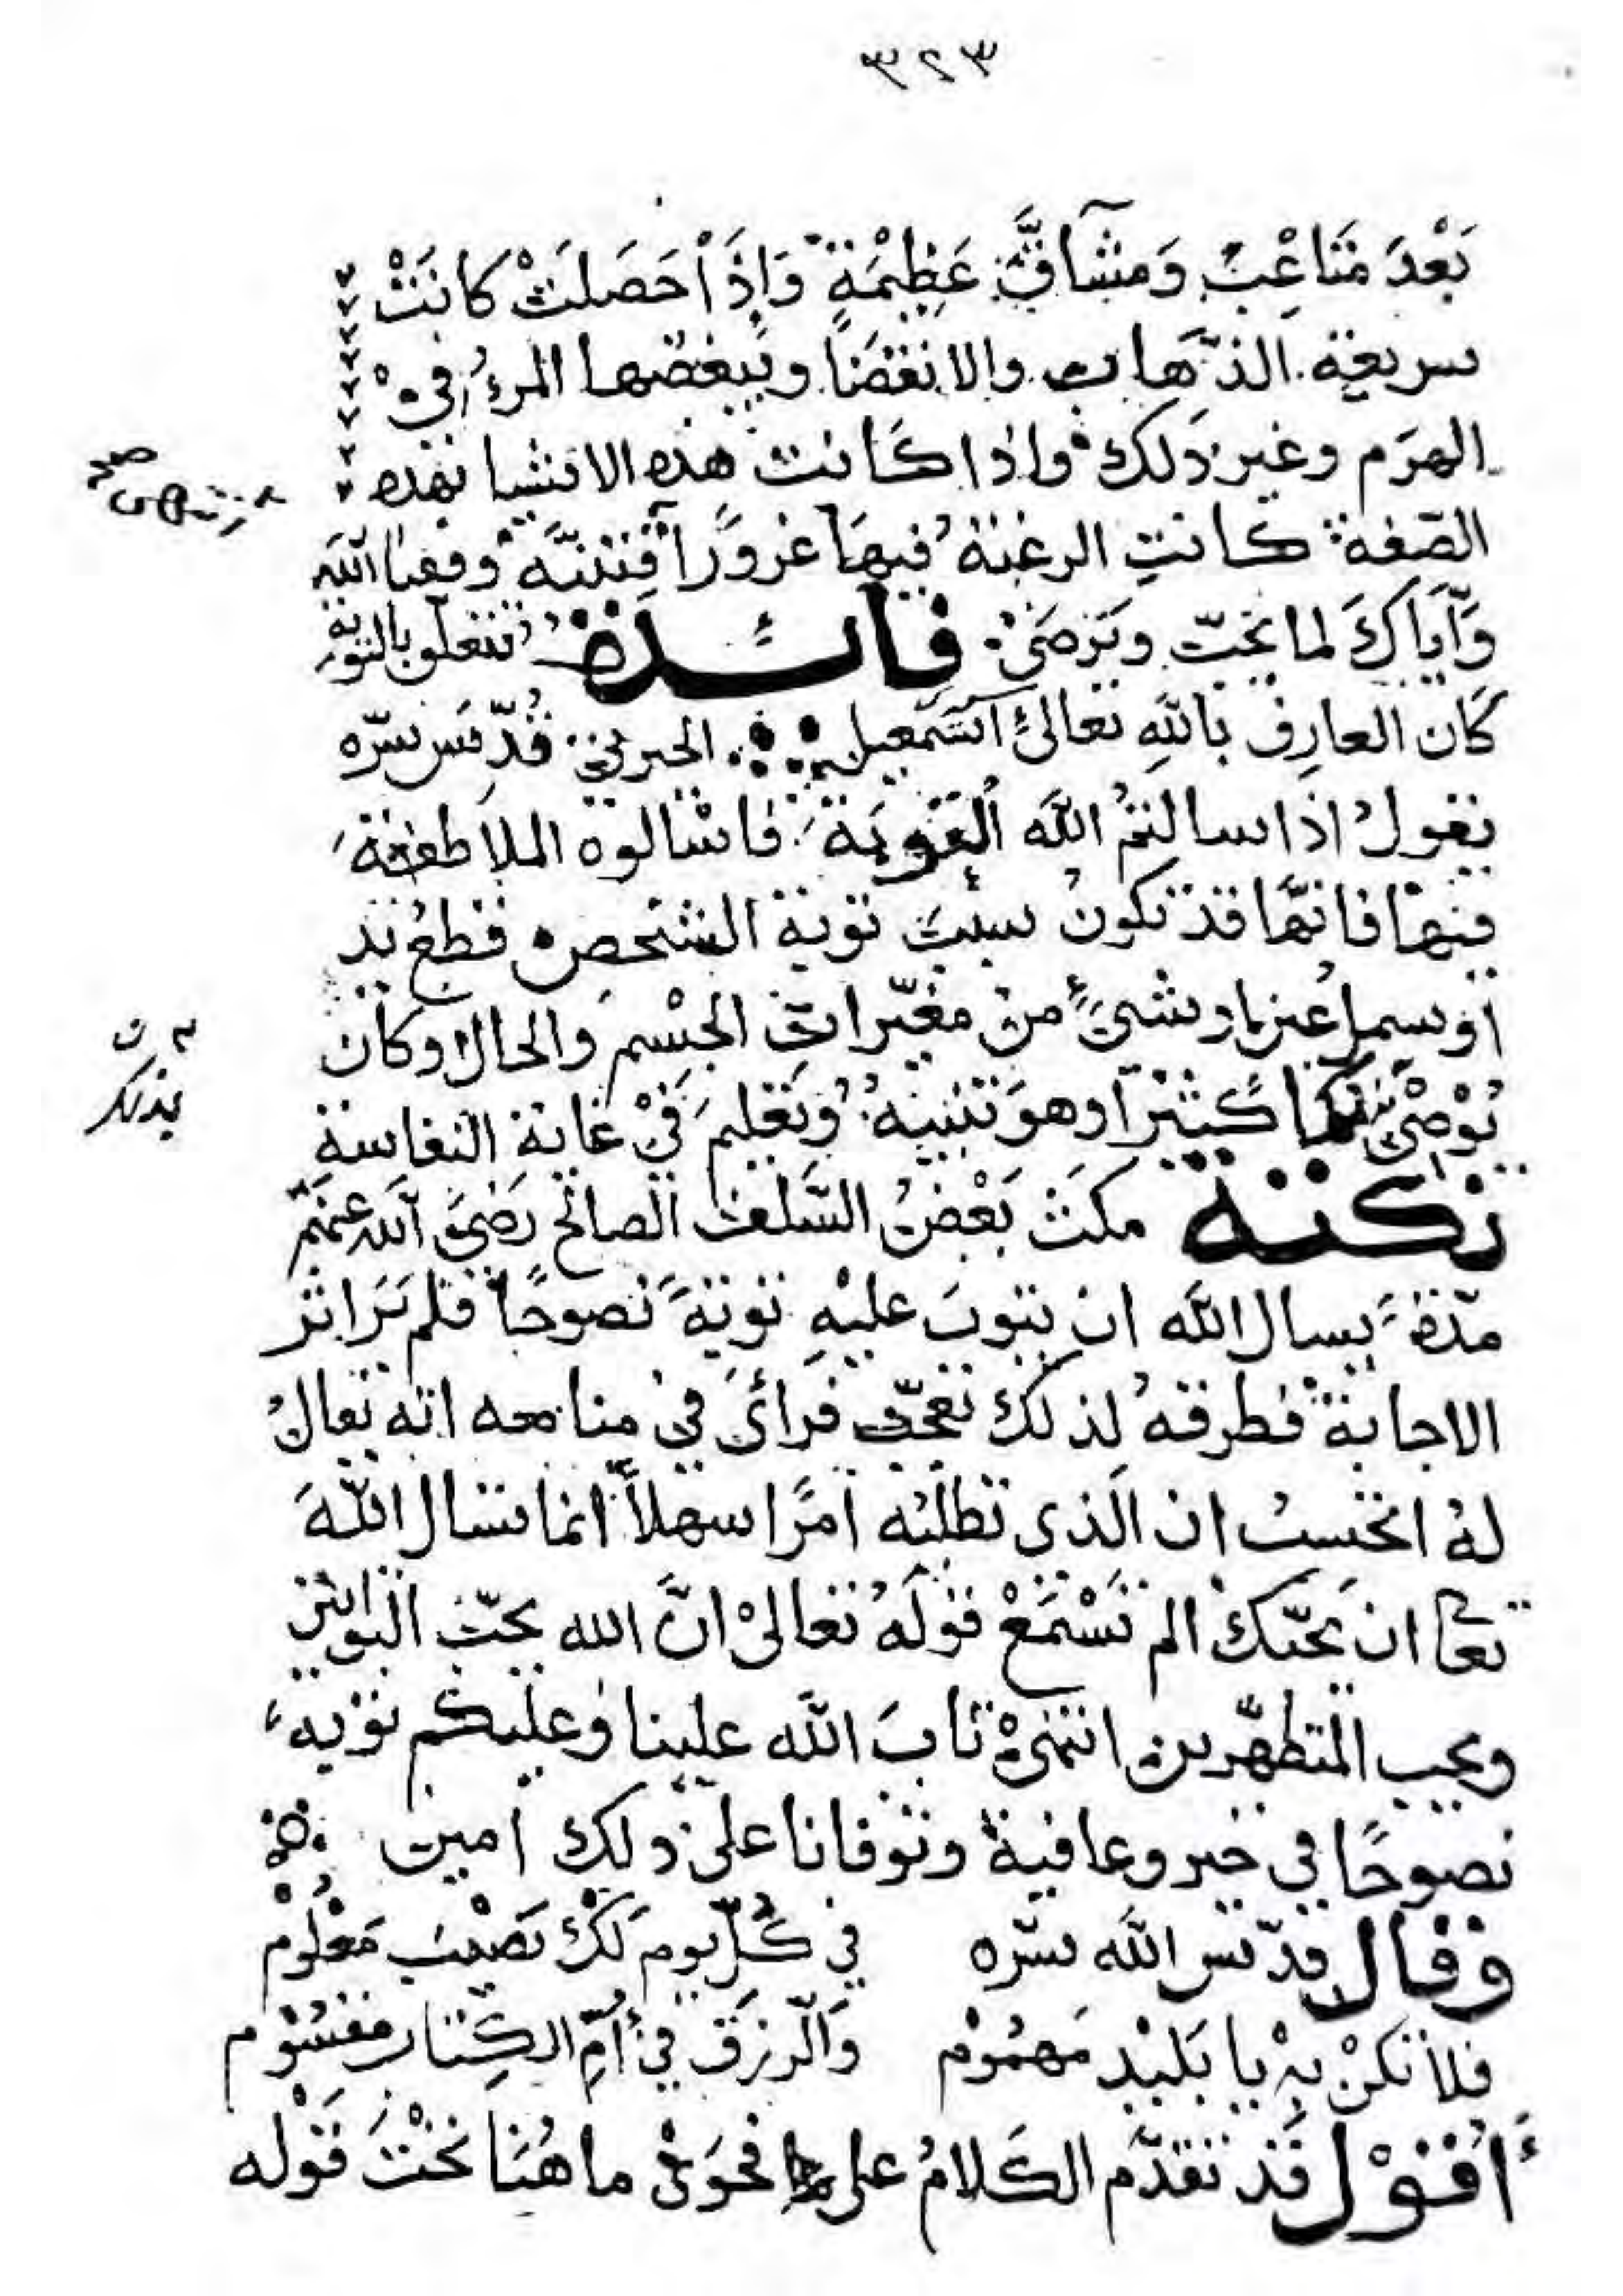 ٣٢٣
بَعْدَ مَتَاعِبَ وَمشآقَّ عَظِيْمَةٍ وَاِذَا حَصَلَتْ كانَتْ
سريعة الذّهاب والانقضَا ويبغضها المرءُ في
الهرَم وغير ذلك واذا كانت هذه الاشيا بهذه
الصّفة كانتِ الرغبة فيهَا غرورًا فتنبَّه وفقنا الله
وَايّاكَ لما يحبّ ويَرضَىٰ فائدة تتعلق بالتوبة
كَان العارِف باللهِ تعالىٰ اسمعيل الجبرتي قُدِّسَ سرّه
يقولُ اذا سالتمُ اللهَ التوبَة فاسْالوه الملاطفة
فيها فانّها قد تكونُ سببَ توبة الشخص قطع يد
او سمل عين او شئ من مغيّرات الجسْم والحال وكان
يُوْصِيْ كثيْرًا وهوَ تنبيهٌ وَتعليم فيْ غاية النفاسة
بذلك
نكتة مكث بَعْضُ السّلف الصالح رَضيَ الله عنهم
مدّة يسال الله ان يتوبَ عليْهِ توبةً نصوحًا فلم يَرَ اثر
الاجابة فطرقهُ لذلك تعجّب فرأىٰ في منامه انه يقالُ
لهُ اتحسبُ ان الّذى تطلبُه امرًا سهلاً انما تسال اللهَ
تعالى ان يحبّك الم تَسْتمَعْ قولَهُ تعالىْ انَّ الله يحبّ التوابين
ويحب المتطهّرين انتهىْ تابَ الله علينا وعليكم توْبه
نصوحًا في خير وعافية وتوفانا على ذلك امين
وقال قدّس اللهَ سّره في كُلّ يوم لَكْ نَصْيبْ مَعْلُومْ
فلا تكنْ بِهْ يا بَليْد مَهمُوْم وَالّرزق فيْ اُمِّ الكِتاب مقسُوْم
أَقُوْل قَد تقدّم الكَلامُ على فحوَىْ ما هُنا تحْتَ قَوْله